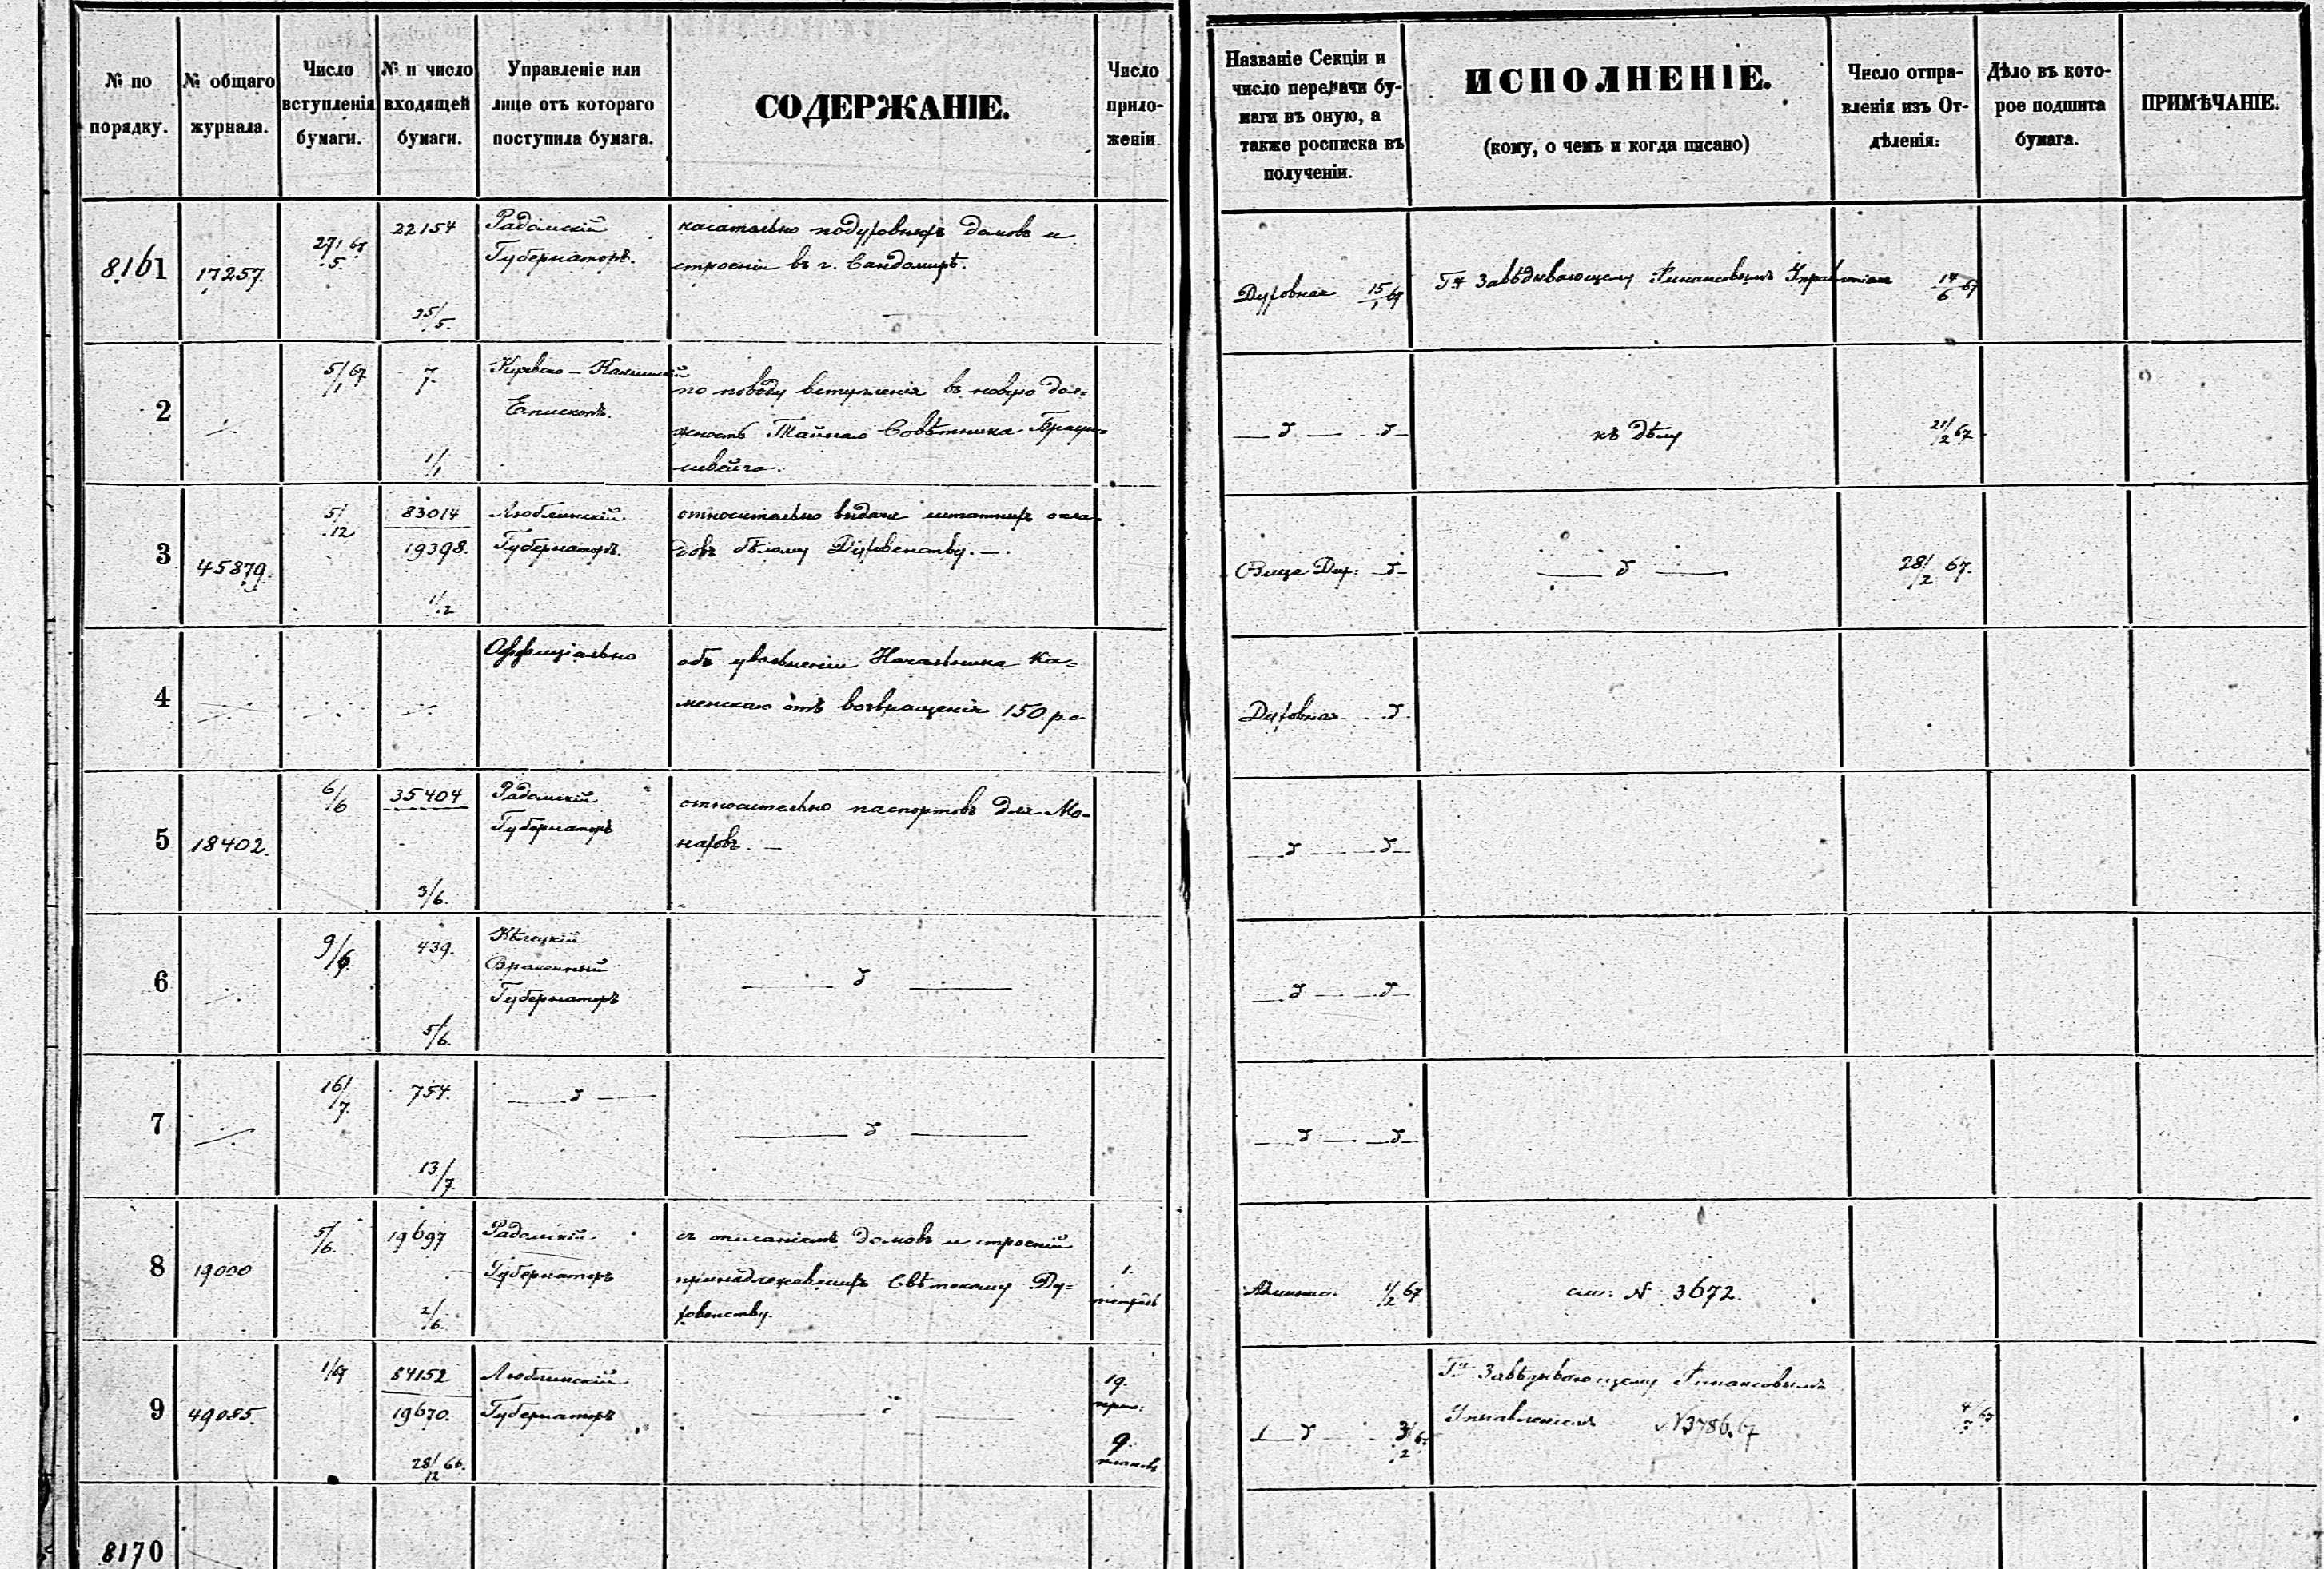 № по порядку.
№ общаго журнала.
Число вступленія бумаги.
№ и число входящей бумаги.
Управленіе или лице отъ котораго поступила бумага.
СОДЕРЖАНІЕ.
Число приложеніи.
Названіе Секціи и число передачи бумаги въ оную, а также росписка въ полученіи.
ИСПОЛНЕНІЕ.
(кому, о чемъ и когда писано)
Число отправленія изъ Отдѣленія:
Дѣло въ которое подшита бумага.
ПРИМѢЧАНІЕ.
8161
17257.
27/5 67
22154
25/5.
Радомскій
Губернаторъ.
касательно подуховныхъ домовъ и
строеніи въ г. Сандомирѣ.
Духовная 15/1 67
Гну Завѣдывающему Финансовымъ Управленіемъ
14/6 67
2
5/1 67
1/1
Епископъ.
по поводу вступленія въ новую дол=
жность Тайнаго Совѣтника Браун=
швейга.
къ дѣлу
21/2 67
3
45879.
5/12
83014
19398.
1/12
Люблинскій
Губернаторъ.
относительно выдачи штатныхъ окла-
довъ бѣлому Духовенству.—.
Вице Дир:
28/2 67.
4
Оффиціально
объ увольненіи Начальника Ка=
менскаго отъ возвращенія 150 р.с.
Духовная
5
18402.
6/6
35404
3/6.
Радомскій
Губернаторъ
относительно паспортовъ для Мо-
наховъ. —
6
9/6
439.
5/6.
Кѣлецкій
Временный
Губернаторъ
7
16/7.
754.
13/7
8
19000
5/6.
19697
2/6.
Радомскій
Губернаторъ
съ описаніемъ домовъ и строеній
принадлежавшихъ Свѣтскому Ду=
ховенству.
1.
тетрадь
1/2 67
см: № 3672.
9
49085.
1/67
84152
19670.
28/12 66.
Люблинскій
Губернаторъ
19.
9.
плановъ
Гну Завѣдывающему Финансовымъ
Управленіемъ №3786.67
8170